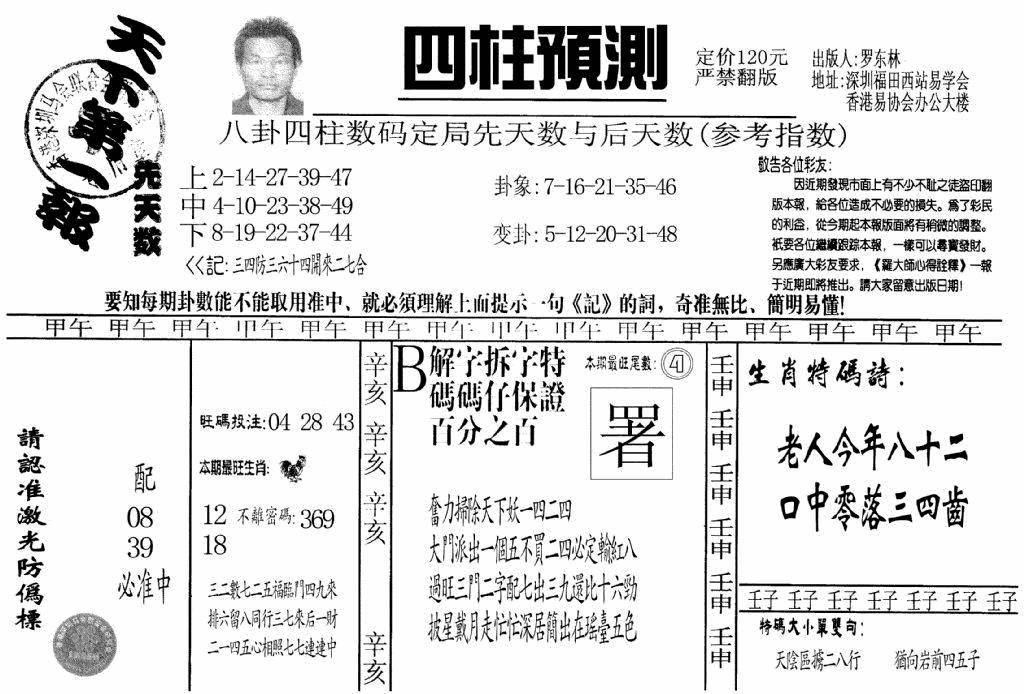 天下第一報
四柱預測
定价120元
严禁翻版
出版人:罗东林
地址:深圳福田西站易学会
香港易协会办公大楼
八卦四柱数码定局先天数与后天数(参考指数)
先天数
上 2-14-27-39-47
中 4-10-23-38-49
下 8-19-22-37-44
<<記:三四防三六十四開來二七合
卦象:7-16-21-35-46
变卦:5-12-20-31-48
敬告各位彩友:
因近期發現市面上有不少不耻之徒盜印翻
版本報,給各位造成不必要的損失。爲了彩民
的利益,從今期起本報版面將有稍微的調整。
衹要各位繼續跟踪本報,一樣可以尋寶發財。
另應廣大彩友要求,《羅大師心得詮釋》一報
于近期即將推出。請大家留意出版日期!
要知每期卦數能不能取用准中、就必須理解上面提示一句《記》的詞,奇准無比、簡明易懂!
甲午 甲午 甲午 甲午 甲午 甲午 甲午 甲午 甲午 甲午 甲午 甲午 甲午 甲午 甲午
請認准激光防僞標
配
08
39
必准中
旺碼投注:04 28 43
本期最旺生肖:
12 不離密碼:369
18
三二數七二五福臨門四九來
排六留八同行三七來后一財
二一四五心相照七七連連中
辛亥 辛亥 辛亥 辛亥
B解字拆字特
碼碼仔保證
百分之百
本期最旺尾數:
署
奮力掃除天下妖一四二四
大門派出一個五不買二四必定輸紅八
過旺三門二字配七出三九還比十六勁
披星戴月走忙忙深居簡出在瑤臺五色
壬申 壬申 壬申 壬申 壬申 壬申
生肖特碼詩:
老人今年八十二
口中零落三四齒
壬子 壬子 壬子 壬子 壬子 壬子 壬子
特碼大小單雙句:
天陰區據二八行 猶向岩前四五子